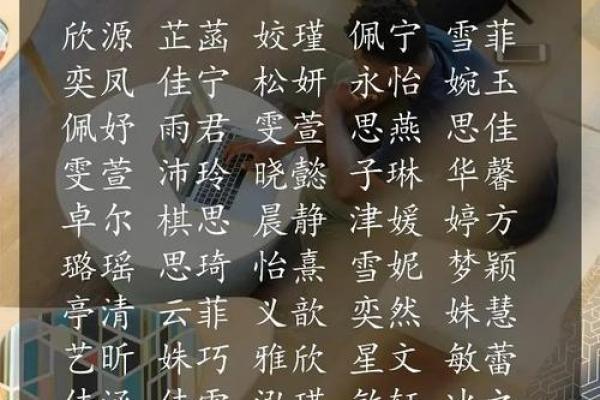 欣源 芷菡 姣瑾 佩宁 雪菲
奕凤 佳宁 松妍 永怡 婉玉
佩妤 雨君 雯萱 思燕 思佳
雯萱 沛玲 晓懿 子琳 华馨
卓尔 棋思 晨静 津媛 婷方
璐瑶 思琦 怡熹 雪妮 梦颖
亭清 云菲 义歆 奕然 姝慧
艺昕 姝巧 雅欣 星文 敏蕾